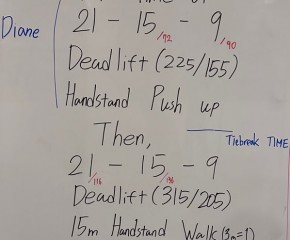 21 - 15 - 9
/72 /90
Diane
Deadlift (225/155)
Handstand Push up
Then,
Tiebreak TIME
21 - 15 - 9
/116
Deadlift (315/205)
15m Handstand Walk (3m=1)